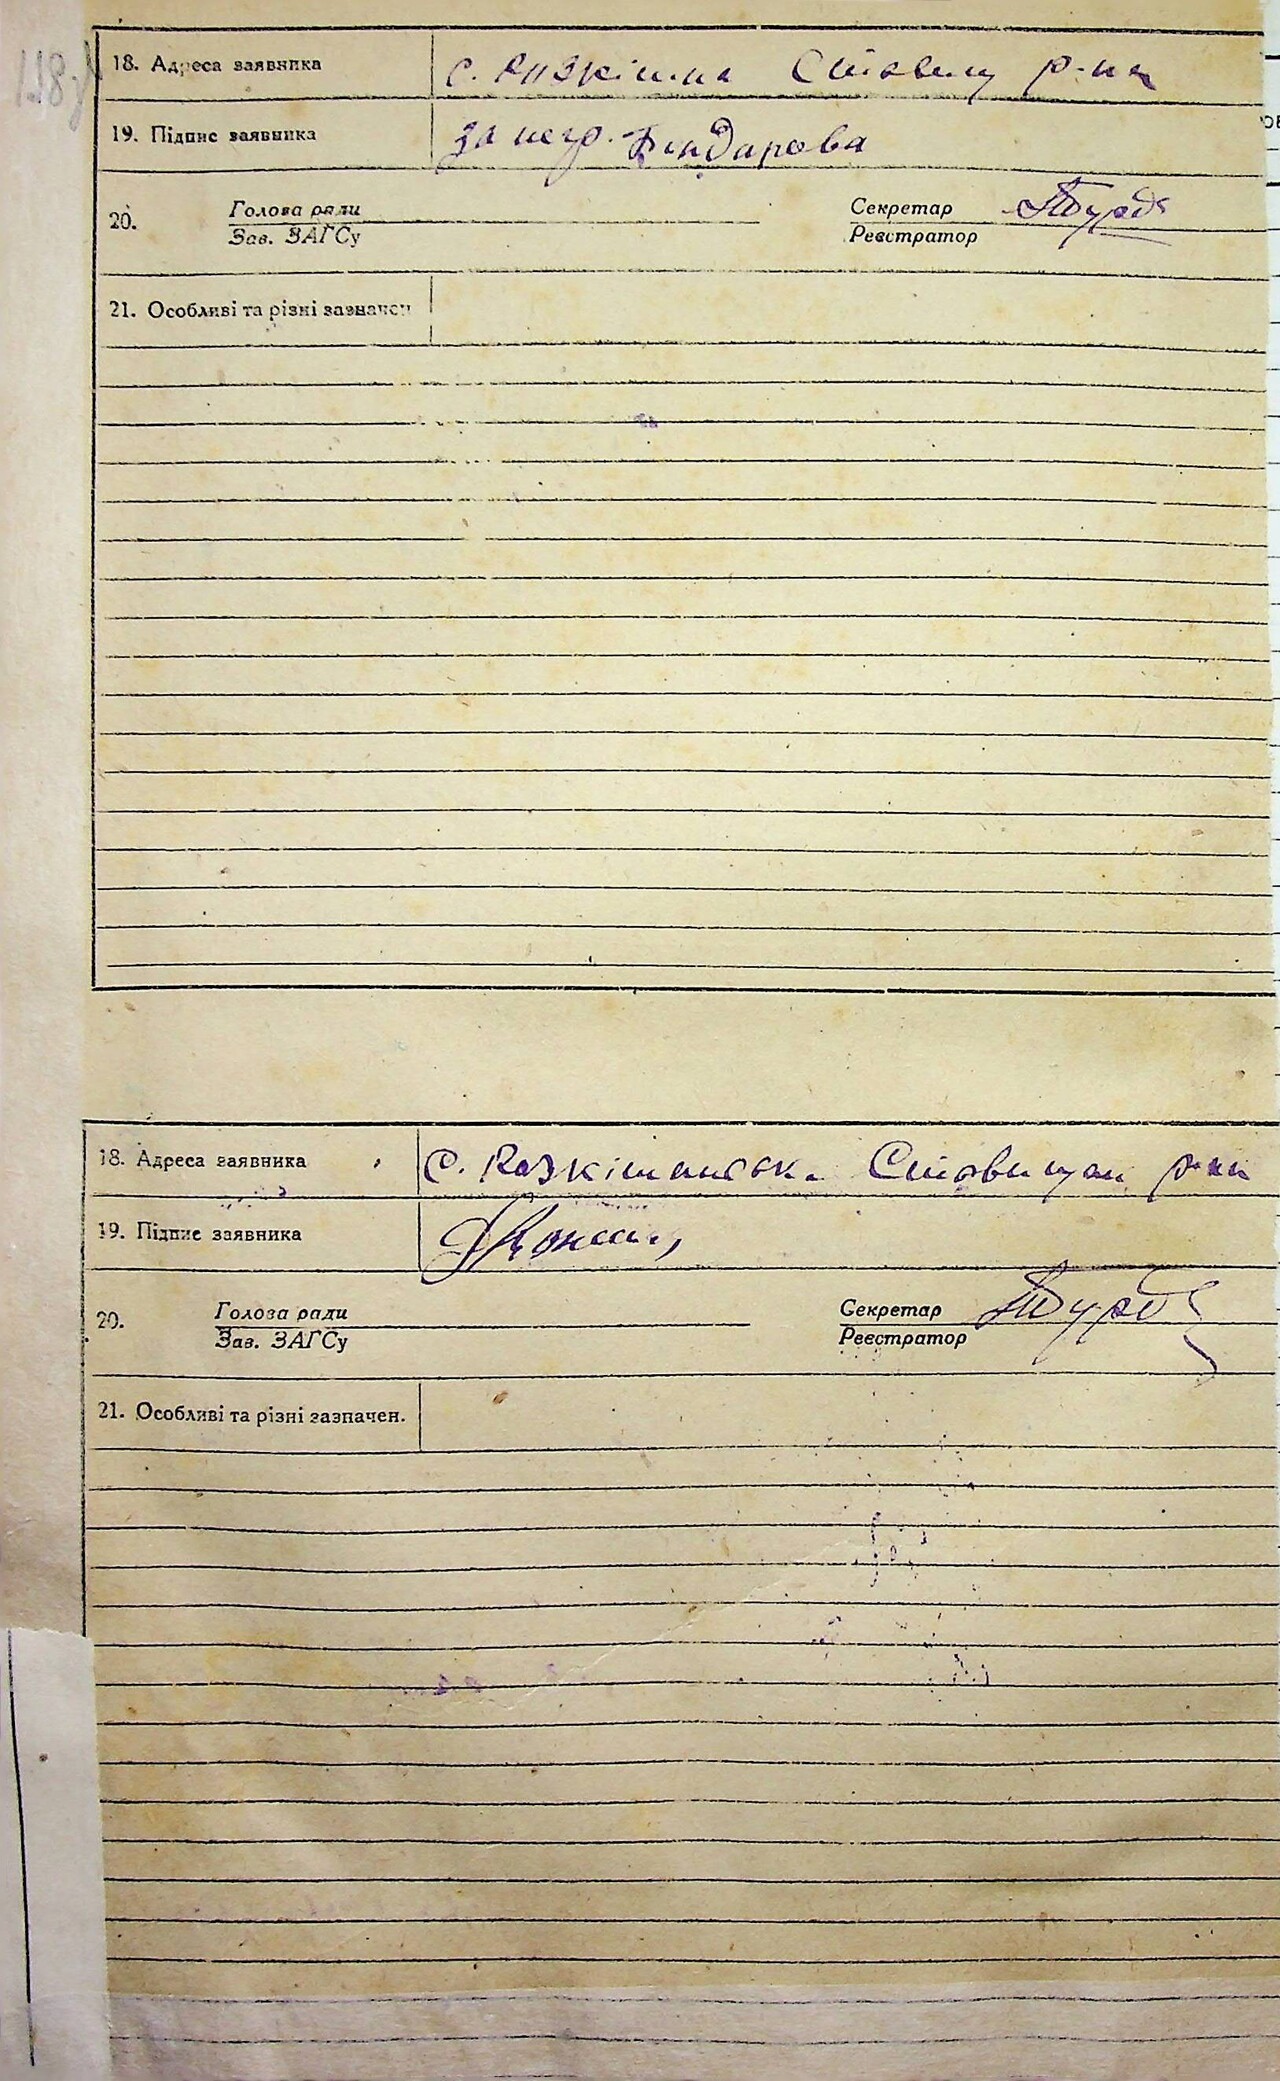 18. Адреса заявника с. Розкішна Ставищ р-на
19. Підпис заявника за негр. Бондарова
20. Голова ради Секретар
Зав. ЗАГСу Реєстратор
21. Особливі та різні зазначен
18. Адреса заявника с. Розкішанська Ставищан р-на
19. Підпис заявника
20. Голова ради Секретар
Зав. ЗАГСу Реєстратор
21. Особливі та різні зазначен.